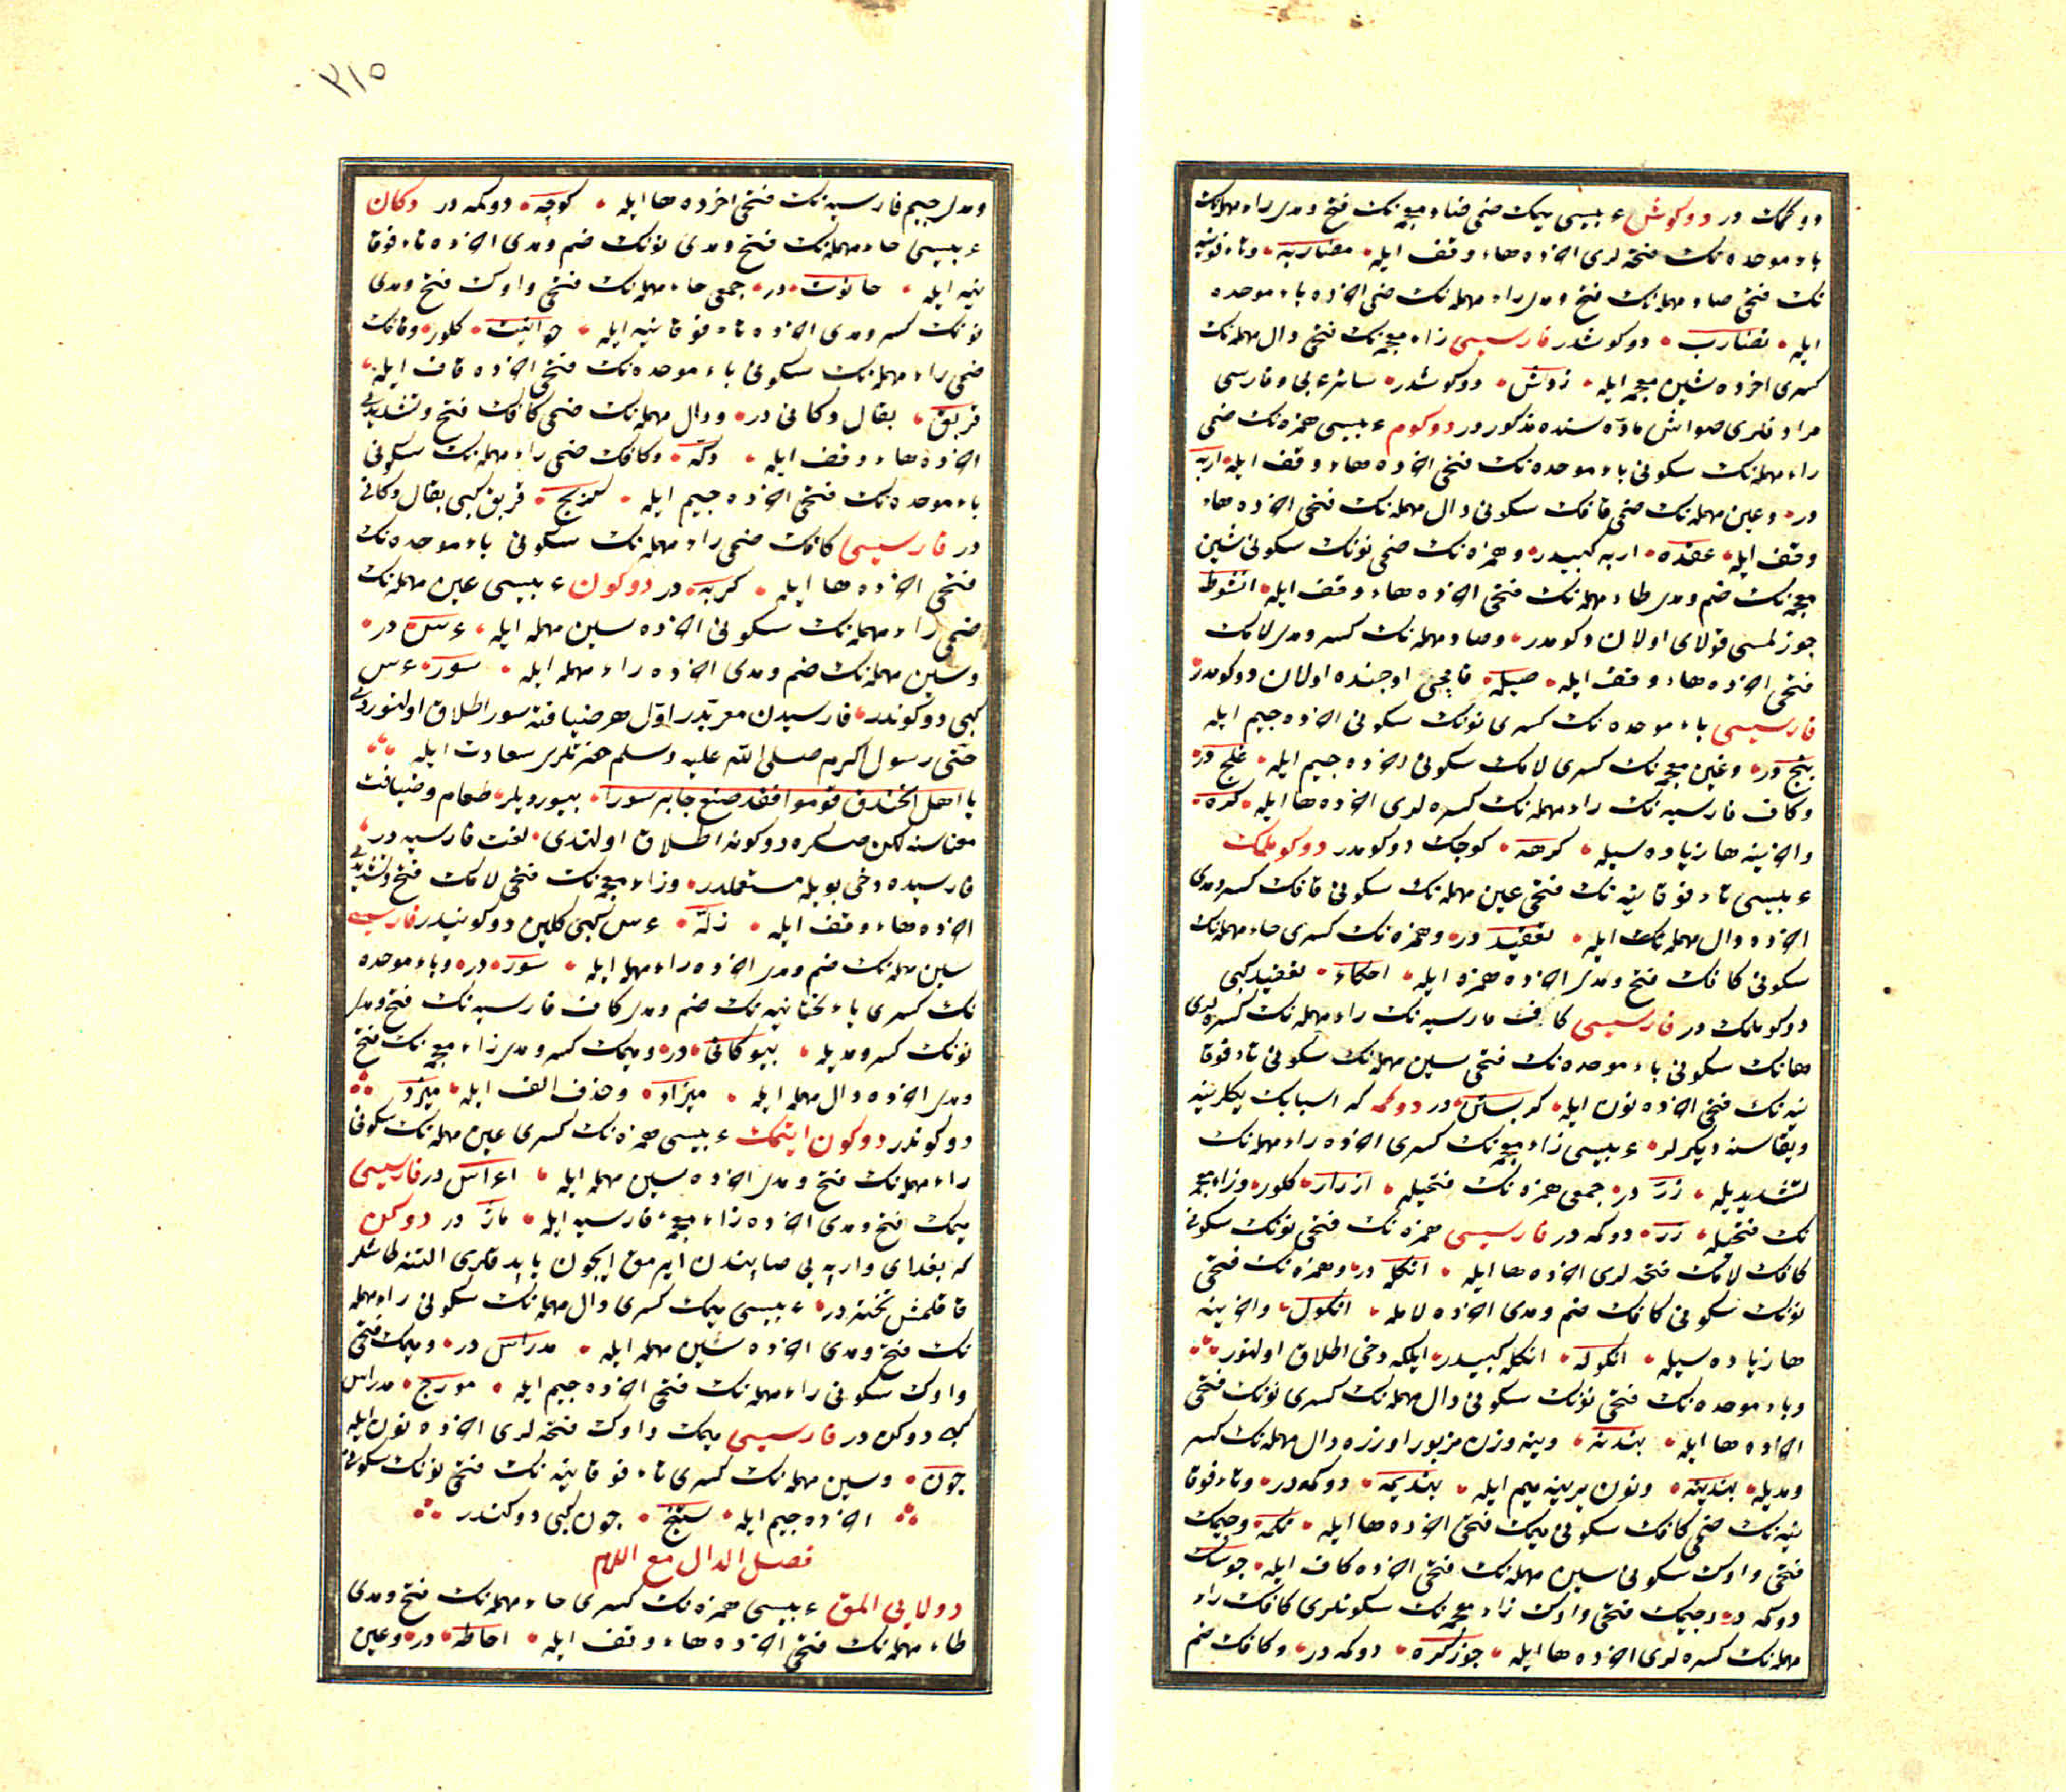 دوكمك در دوكوش ءبيسى ميمك ضمى ضاد معجمه نك فتح ومدى راء مهمله نك
باء موحده نك فتحه لرى اخرده هاء وقف ايله مضاربه وتاء فوقيه
نك فتحى ضاد مهمله نك فتح ومدى راء مهمله نك ضمى اخرده باء موحده
ايله تضارب دوكوشدر فارسيسى زاء معجمه نك فتحى دال مهمله نك
كسرى اخرده شين معجمه ايله زدش دوكوشدر سائر عربى وفارسى
مرادفلرى صواش ماده سنده مذكوردر دوكوم ءبيسى همزه نك ضمى
راء مهمله نك سكونى باء موحده نك فتحى اخرده هاء وقف ايله اربه
در وعين مهمله نك ضمى قافك سكونى دال مهمله نك فتحى اخرده هاء
وقف ايله عقده اربه كبيدر وهمزه نك ضمى نونك سكونى شين
معجمه نك ضم ومدى طاء مهمله نك فتحى اخرده هاء وقف ايله انشوطه
چوزلمسى قولاى اولان دكومدر وصاد مهمله نك كسر ومدى لامك
فتحى اخرده هاء وقف ايله صيله قامچى اوجنده اولان دوكومدر
فارسيسى باء موحده نك كسرى نونك سكونى اخرده جيم ايله
بنج در وغين معجمه نك كسرى لامك سكونى اخرده جيم ايله غلج در
وكاف فارسيه نك راء مهمله نك كسره لرى اخرده ها ايله كره
واخرينه ها زياده سيله كرهه كوچك دوكومدر دوكوملمك
ءبيسى تاء فوقانيه نك فتحى عين مهمله نك سكونى قافك كسر ومدى
اخرده دال مهمله نك ايله تعقيد در وهمزه نك كسرى حاء مهمله نك
سكونى كافك فتح ومدى اخرده همزه ايله احكاء تعقيد كبى
دوكوملمك در فارسيسى كاف فارسيه نك راء مهمله نك كسره لرى
هانك سكونى باء موحده نك فتحى سين مهمله نك سكونى تاء فوقا
نيه نك فتحى اخرده نون ايله كرهبستن در دوكمه كه اسبابك يكلرينه
ويقاسنه ديكرلر ءبيسى زاء معجمه نك كسرى اخرده راء مهمله نك
تشديديله زرّ در جمعى همزه نك فتحيله ازرار كلور وزاء معجمه
نك فتحيله زره دوكمه در فارسيسى همزه نك فتحى نونك سكونى
كافك لامك فتحه لرى اخرده ها ايله انكله در وهمزه نك فتحى
نونك سكونى كافك ضم ومدى اخرده لام ايله انكول واخرينه
ها زياده سيله انكوله انكله كبيدر ايلكه دخى اطلاق اولنور
وباء موحده نك فتحى نونك سكونى دال مهمله نك كسرى نونك فتحى
اخرده ها ايله بندنه وينه وزن مزبور اوزره دال مهمله نك كسر
ومديله بندينه ونون يرينه ميم ايله بنديمه دوكمه در وتاء فوقا
نيه نك ضمى كافك سكونى ميمك فتحى اخرده ها ايله تكمه وجيمك
فتحى واوك سكونى سين مهمله نك فتحى اخرده كاف ايله جوسك
دوكمه در وجيمك فتحى واوك زاء معجمه نك سكونلرى كافك راء
مهمله نك كسره لرى اخرده ها ايله جوزكره دوكمه در وكافك ضم
٣١٥
ومدى جيم فارسيه نك فتحى اخرده ها ايله كوچه دوكمه در دكان
ءبيسى حاء مهمله نك فتح ومدى نونك ضم ومدى اخرده تاء فوقا
نيه ايله حانوت در جمعى حاء مهمله نك فتحى واوك فتح ومدى
نونك كسر ومدى اخرده تاء فوقانيه ايله حوانيت كلور وقافك
ضمى راء مهمله نك سكونى باء موحده نك فتحى اخرده قاف ايله
قربق بقال دكانى در ودال مهمله نك ضمى كافك فتح وتشديدى
اخرده هاء وقف ايله دكّه وكافك ضمى راء مهمله نك سكونى
باء موحده نك فتحى اخرده جيم ايله كربج قربق كبى بقال دكانى
در فارسيسى كافك ضمى راء مهمله نك سكونى باء موحده نك
فتحى اخرده ها ايله كربه در دوكون ءبيسى عين مهمله نك
ضمى راء مهمله نك سكونى اخرده سين مهمله ايله عرس در
وسين مهمله نك ضم ومدى اخرده راء مهمله ايله سور عرس
كبى دوكوندر فارسيدن معربدر اول هر ضيافته سور اطلاق اولنوردى
حتى رسول اكرم صلى الله عليه وسلم حضرتلرى سعادت ايله
يا اهل الخندق قوموا فقد صنع جابر سورا بيورديلر طعام وضيافت
معناسنه لكن صكره دوكونه اطلاق اولندى لغت فارسيه در
فارسيده دخى بويله مستعملدر وزاء معجمه نك فتحى لامك فتح وتشديدى
اخرده هاء وقف ايله زلّه عرس كبى كلين دوكونيدر فارسيسى
سين مهمله نك ضم ومدى اخرده راء مهمله ايله سور در وباء موحده
نك كسرى ياء تحتانيه نك ضم ومدى كاف فارسيه نك فتح ومدى
نونك كسر ومديله بيوكانى در وميمك كسر ومدى زاء معجمه نك فتح
ومدى اخرده دال مهمله ايله ميزاد وحذف الف ايله ميزد
دوكوندر دوكون ايتمك ءبيسى همزه نك كسرى عين مهمله نك سكونى
راء مهمله نك فتح ومدى اخرده سين مهمله ايله اعراس در فارسيسى
ميمك فتح ومدى اخرده زاء معجمه فارسيه ايله ماژ در دوكن
كه بغداى واربه يى صابندن ايرمق ايچون ياپدقلرى التنه طاشلر
قاقلمش تخته در ءبيسى ميمك كسرى دال مهمله نك سكونى راء مهمله
نك فتح ومدى اخرده سين مهمله ايله مدراس در وميمك فتحى
واوك سكونى راء مهمله نك فتحى اخرده جيم ايله مورج مدراس
كبى دوكن در فارسيسى جيمك واوك فتحه لرى اخرده نون ايله
جون وسين مهمله نك كسرى تاء فوقانيه نك فتحى نونك سكونى
اخرده جيم ايله ستنج جون كبى دوكندر
فصل الدال مع اللام
دولابى المق ءبيسى همزه نك كسرى حاء مهمله نك فتح ومدى
طاء مهمله نك فتحى اخرده هاء وقف ايله احاطه در وعين